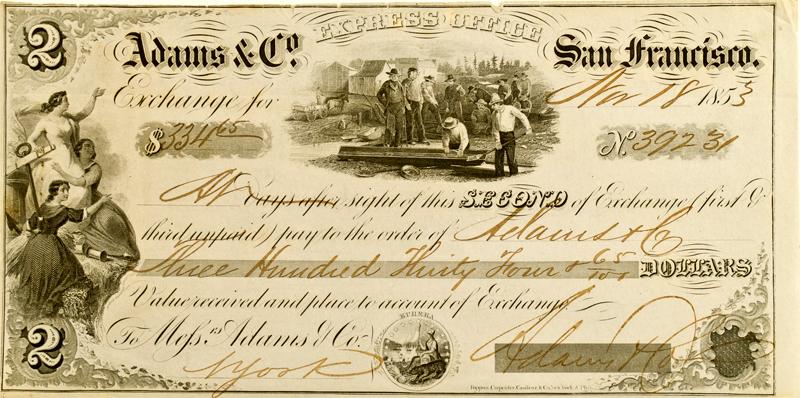 EXPRESS OFFICE
2 Adams & Co. San Francisco.
Exchange for Nov 18 1853
$ 334 65 No 39231
At Days after sight of this SECOND of Exchange (first &
third unpaid) pay to the order of Adams & Co
Three Hundred Thirty Four & 65/100 DOLLARS
Value received and place to account of Exchange.
To Messrs Adams & Co. EUREKA
2 N York Adams & Co